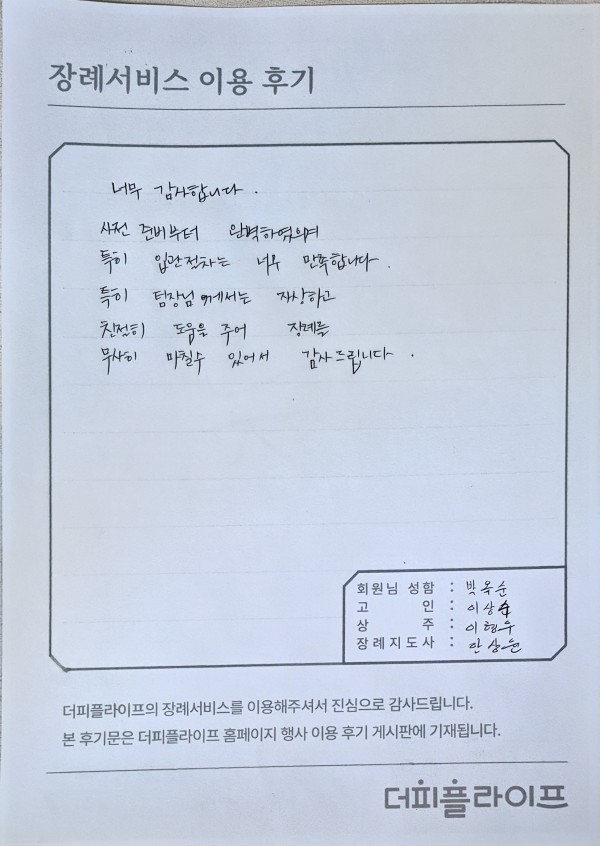 장례서비스 이용 후기
너무 감사합니다.
사전 준비부터 완벽하였으며
특히 입관절차는 너무 만족합니다.
특히 팀장님께서는 자상하고
친절히 도움을 주어 장례를
무사히 마칠수 있어서 감사드립니다.
회원님 성함 : 박옥순
고 인 : 이상
상 주 : 이형우
장례지도사 : 안상은
더피플라이프의 장례서비스를 이용해주셔서 진심으로 감사드립니다.
본 후기문은 더피플라이프 홈페이지 행사 이용 후기 게시판에 기재됩니다.
더피플라이프